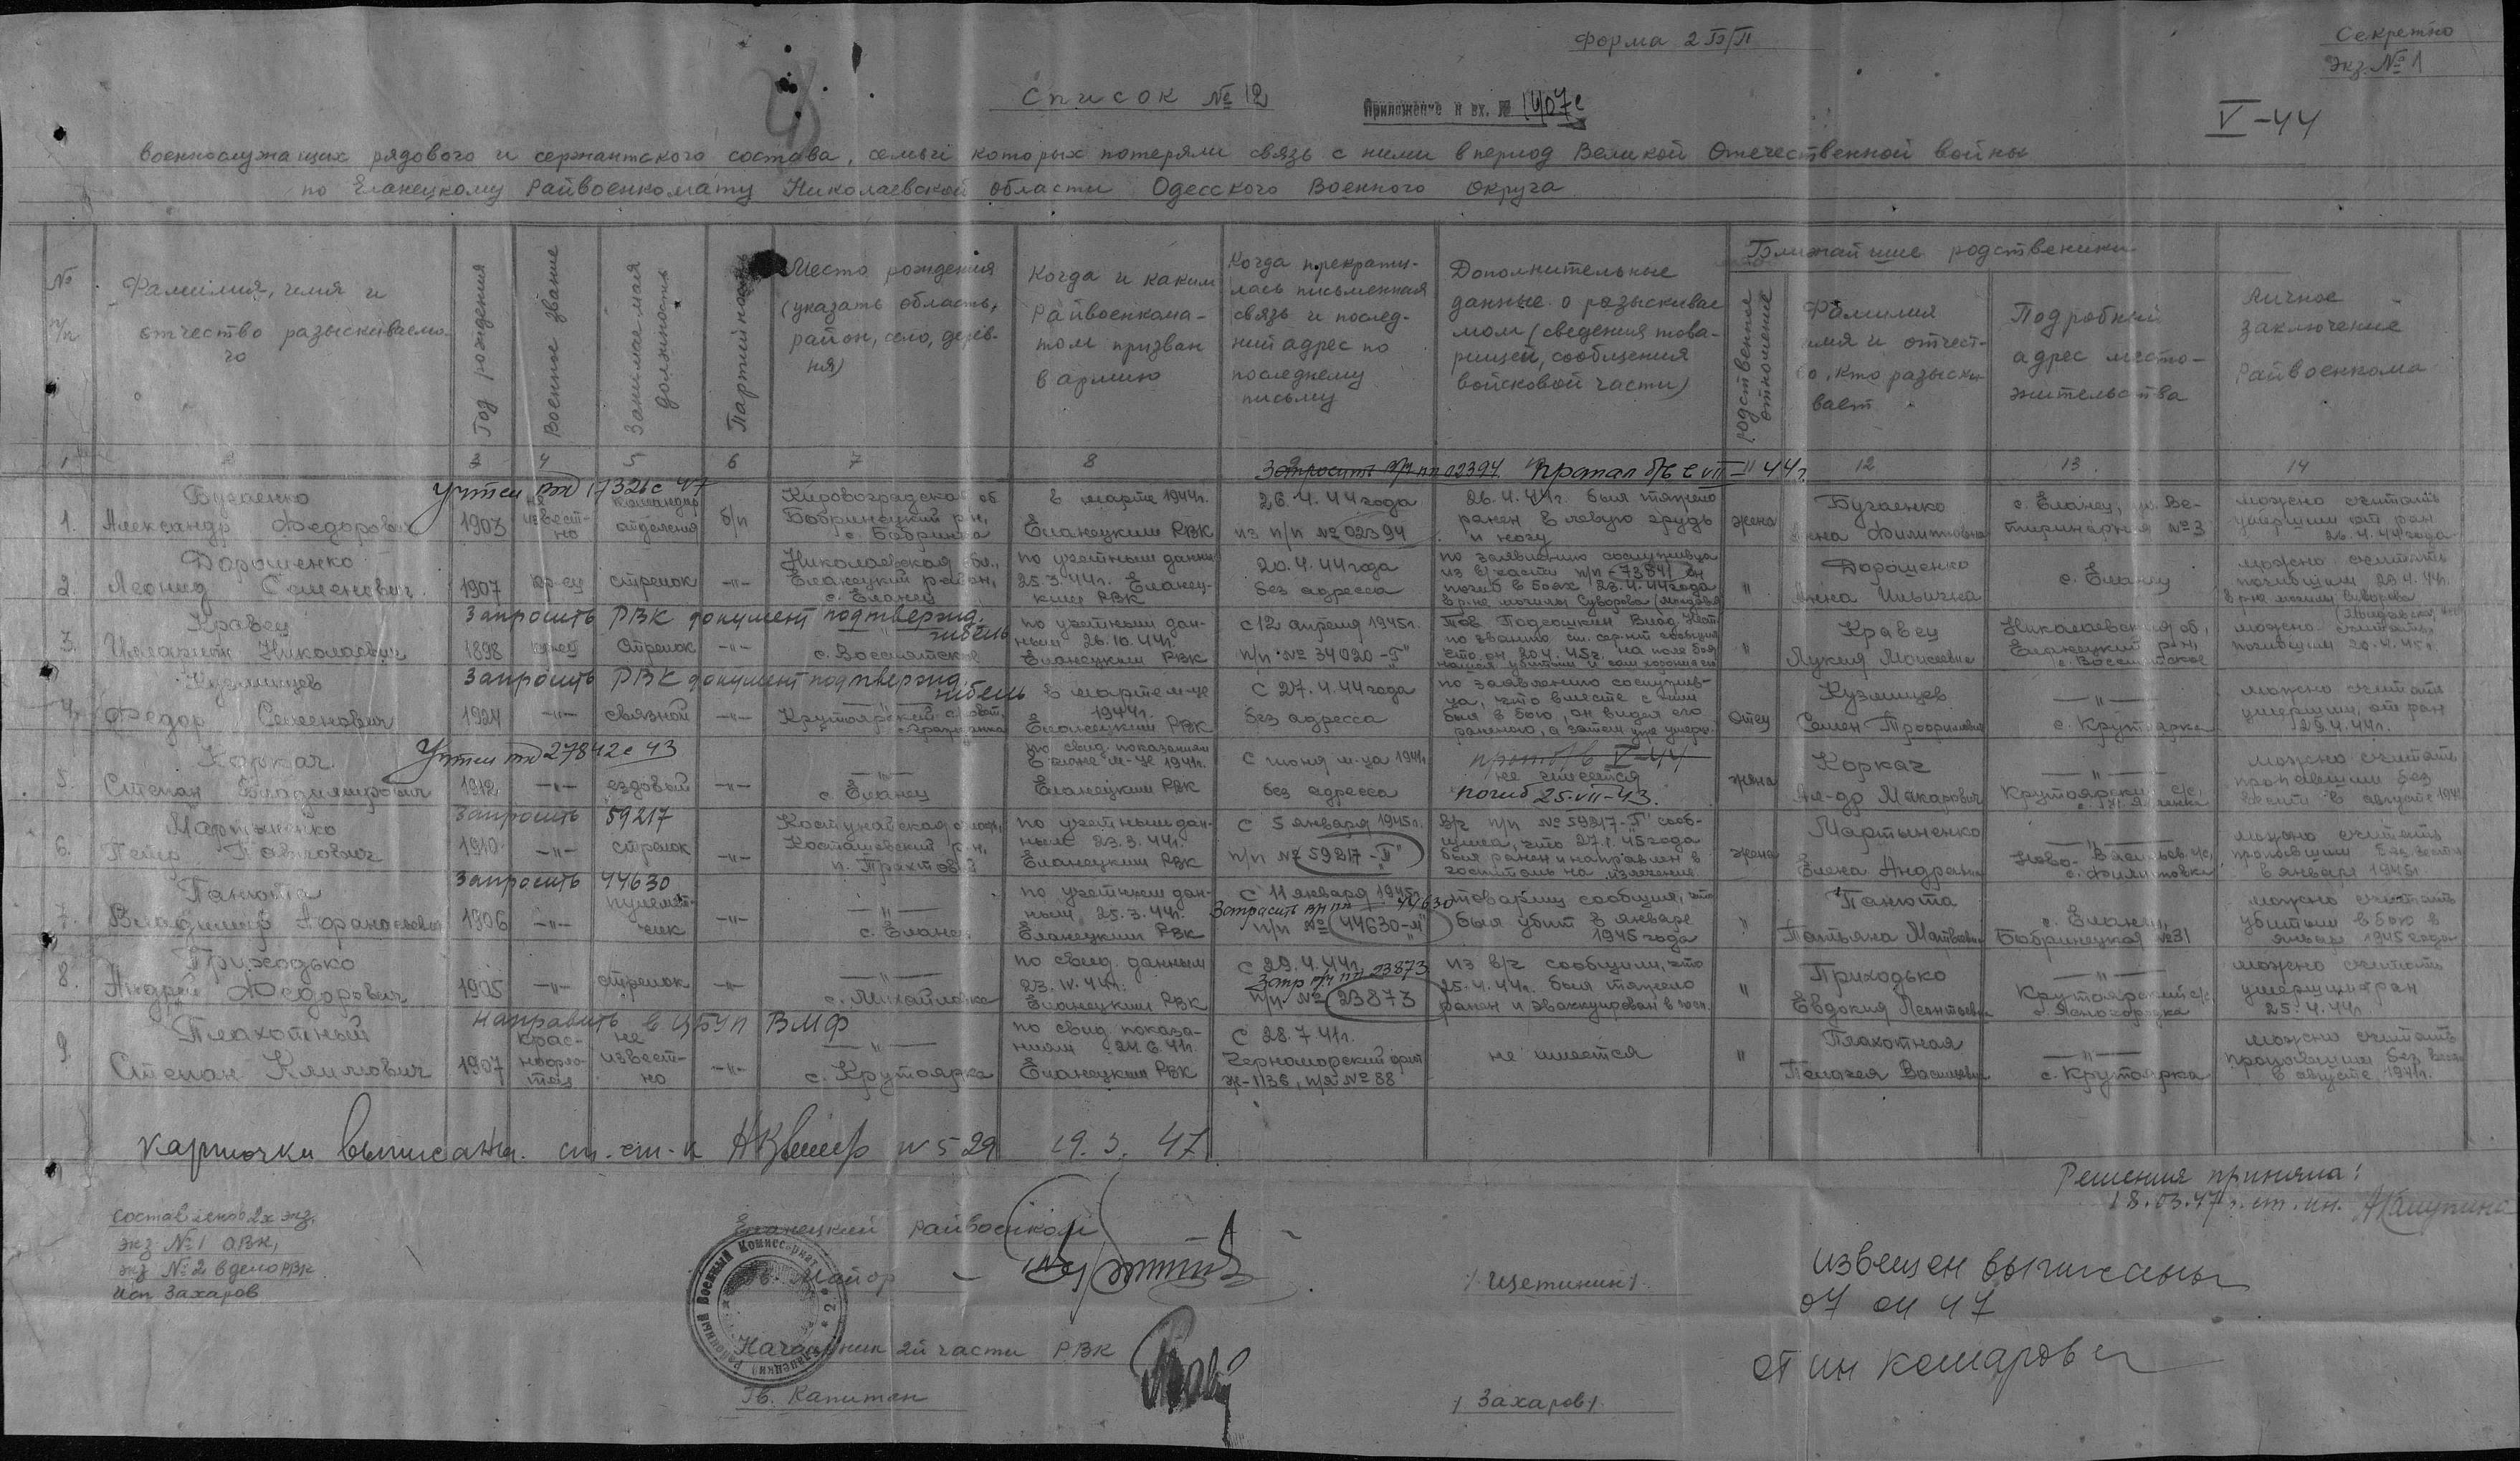 Форма 2 Б/П
Секретно
Экз. № 1
Список № 12
Приложение к вх. № 1407с
V-44
военнослужащих рядового и сержантского состава, семьи которых потеряли связь с ними в период Великой Отечественной войны
по Еланецкому Райвоенкомату Николаевской области Одесского Военного Округа
№ п/п
Фамилия, имя и отчество разыскиваемого
Год рождения
Военное звание
Занимаемая должность
Партийность
Место рождения (указать область, район, село, деревня)
Когда и каким Райвоенкоматом призван в армию
Когда прекратилась письменная связь и последний адрес по последнему письму
Дополнительные данные о разыскиваемом (сведения товарищей, сообщения войсковой части)
Ближайшие родственники
родственное отношение
Фамилия имя и отчество, кто разыскивает
Подробный адрес местожительства
Личное заключение Райвоенкома
1 2 3 4 5 6 7 8 12 13 14
Запросить в/ч пп 02394 пропал б/в с VII-44г.
Учтен вх 17326с 47
1. Бугаенко Александр Федорович
1903
не известно
командир отделения
б/п
Кировоградская об. Бобринецкий р-н, с. Бобринка
в марте 1944г. Еланецким РВК
26.4.44 года из п/п № 02394
26.4.44г. был тяжело ранен в левую грудь и ногу
жена
Бугаенко Анна Филипповна
с. Еланец, ул. Ветеринарная № 3
можно считать умершим от ран 26.4.44 года
2. Дорошенко Леонид Семенович
1907
кр-ец
стрелок
-"-
Николаевская обл., Еланецкий район, с. Еланец
по учетным данным 25.3.44г. Еланецким РВК
20.4.44 года без адреса
по заявлению сослуживца из в/части п/п -73841 он погиб в боях 23.4.44 года в р-не могилы Суворова
"
Дорошенко Анна Ильинична
с. Еланец
можно считать погибшим 23.4.44г. в р-не могилы Суворова
Запросить РВК документ подтвержд. гибель
3. Кравец Илларион Николаевич
1898
кр-ец
Стрелок
-"-
с. Воссиятское
по учетным данным 26.10.44г. Еланецким РВК
с 12 апреля 1945г. п/п № 34020-"Г"
что он 20.4.45г. на поле боя
"
Кравец Лукия Моисеевна
Николаевская об, Еланецкий р-н, с. Воссиятское
можно считать погибшим 20.4.45г.
Запросить РВК документ подтвержд. гибель
4. Кузмицев Федор Семенович
1924
-"-
связной
-"-
в марте м-це 1944г. Еланецким РВК
С 27.4.44 года без адреса
по заявлению сослуживца, что вместе с ним был в бою, он видел его раненого, а затем уже умерш.
отец
Кузмицев Семен Трофимович
-"- с. Крутоярка
можно считать умершим, от ран 29.4.44г.
Учтен вх 27842с 43
5. Коркач Степан Владимирович
1912
-"-
ездовый
-"-
-"- с. Еланец
по свид. показаниям в июне м-це 1941г. Еланецким РВК
С июня м-ца 1941г. без адреса
проп б/в V-44
не имеется
погиб 25-VII-43.
жена
Коркач Ал-др Макарович
-"- Крутоярский с/с,
можно считать пропавшим без вести в августе 1941г.
Запросить 59217
6. Мартыненко Петр Павлович
1910
-"-
стрелок
-"-
по учетным данным 23.3.44г. Еланецким РВК
С 5 января 1945г. п/п № 59217-"П"
В/г п/п № 59217-"Г" сообщила, что 27.1.45 года был ранен и направлен в госпиталь на излечение
жена
Мартыненко Елена
Ново-Васильев. с/с, с. Филиповка
можно считать пропавшим без вести в январе 1945г.
Запросить 44630
7. Панюта Владимир Афанасьевич
1906
-"-
пулеметчик
-"-
-"- с. Еланец
по учетным данным 25.3.44г. Еланецким РВК
С 11 января 1945г.
Запросить в/ч пп 44630
п/п № 44630-"М"
товарищ сообщил, что был убит в январе 1945 года
"
Панюта Татьяна Матвеевна
с. Еланец, Бобринецкая № 31
можно считать убитым в бою в январе 1945 года
8. Приходько Андрей Федорович
1905
-"-
стрелок
-"-
-"- с. Михайловка
по свид. данным 23.IV.44г. Еланецким РВК
С 29.4.44г.
Запр в/ч пп 23873
п/п № 23873
из в/г сообщили, что 25.4.44г. был тяжело ранен и эвакуирован в госп.
"
Приходько Евдокия Леонтьевна
-"- Крутоярский с/с, с. Ясногородка
можно считать умершим ран 25.4.44г.
Направить в ЦБУП ВМФ
9. Плахотный Степан Климович
1907
краснофлотец
не известно
-"-
-"- с. Крутоярка
по свид. показаниям 24.6.41г. Еланецким РВК
С 28.7.41г. Черноморский флот п/я № 88
не имеется
"
Плахотная Пелагея Васильевна
-"- с. Крутоярка
можно считать пропавшим без вести в августе 1941г.
карточки выписаны. ст. ст-к 19.3.47
Решения приняла:
18.03.47г. ст. ин.
составлено 2х экз.
экз № 1 ОВК,
экз № 2 в дело РВК
исп Захаров
Еланецкий райвоенком
Гв. Майор - /Щетинин/
Начальник 2й части РВК
Гв. Капитан /Захаров/
извещен выписаны
07 04 47
ст ин Комарова